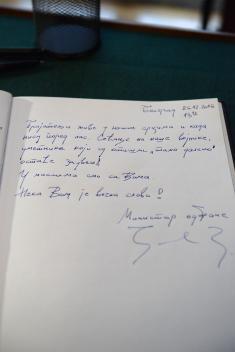 Београд 26.12.2016
Пријатељи живе у нашим срцима и када
нису поред нас. Сећање на наше војнике,
уметнике који су отишли, тако далеко
остаје заувек!
У мислима смо са Вама.
Нека Вам је вечна слава!
Министар одбране